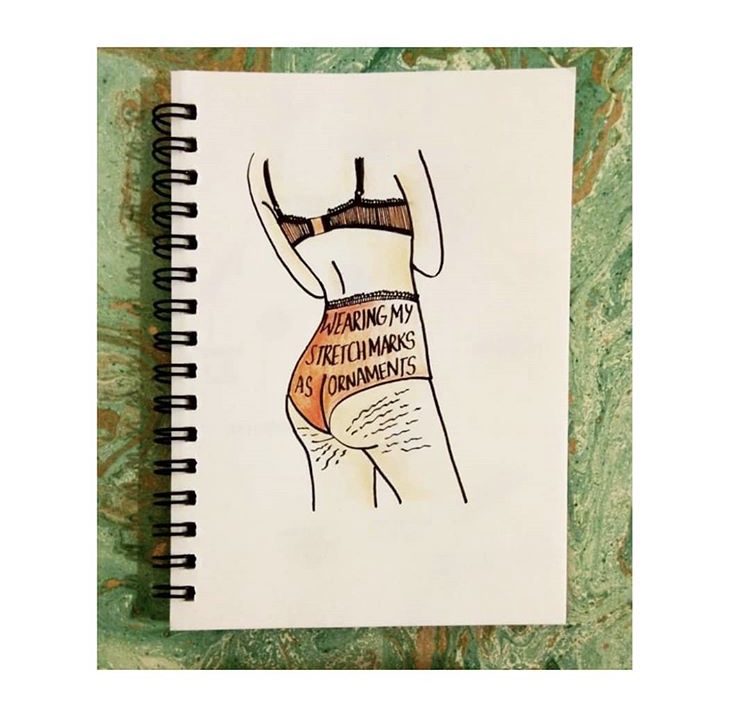 WEARING MY
STRETCH MARKS
AS ORNAMENTS